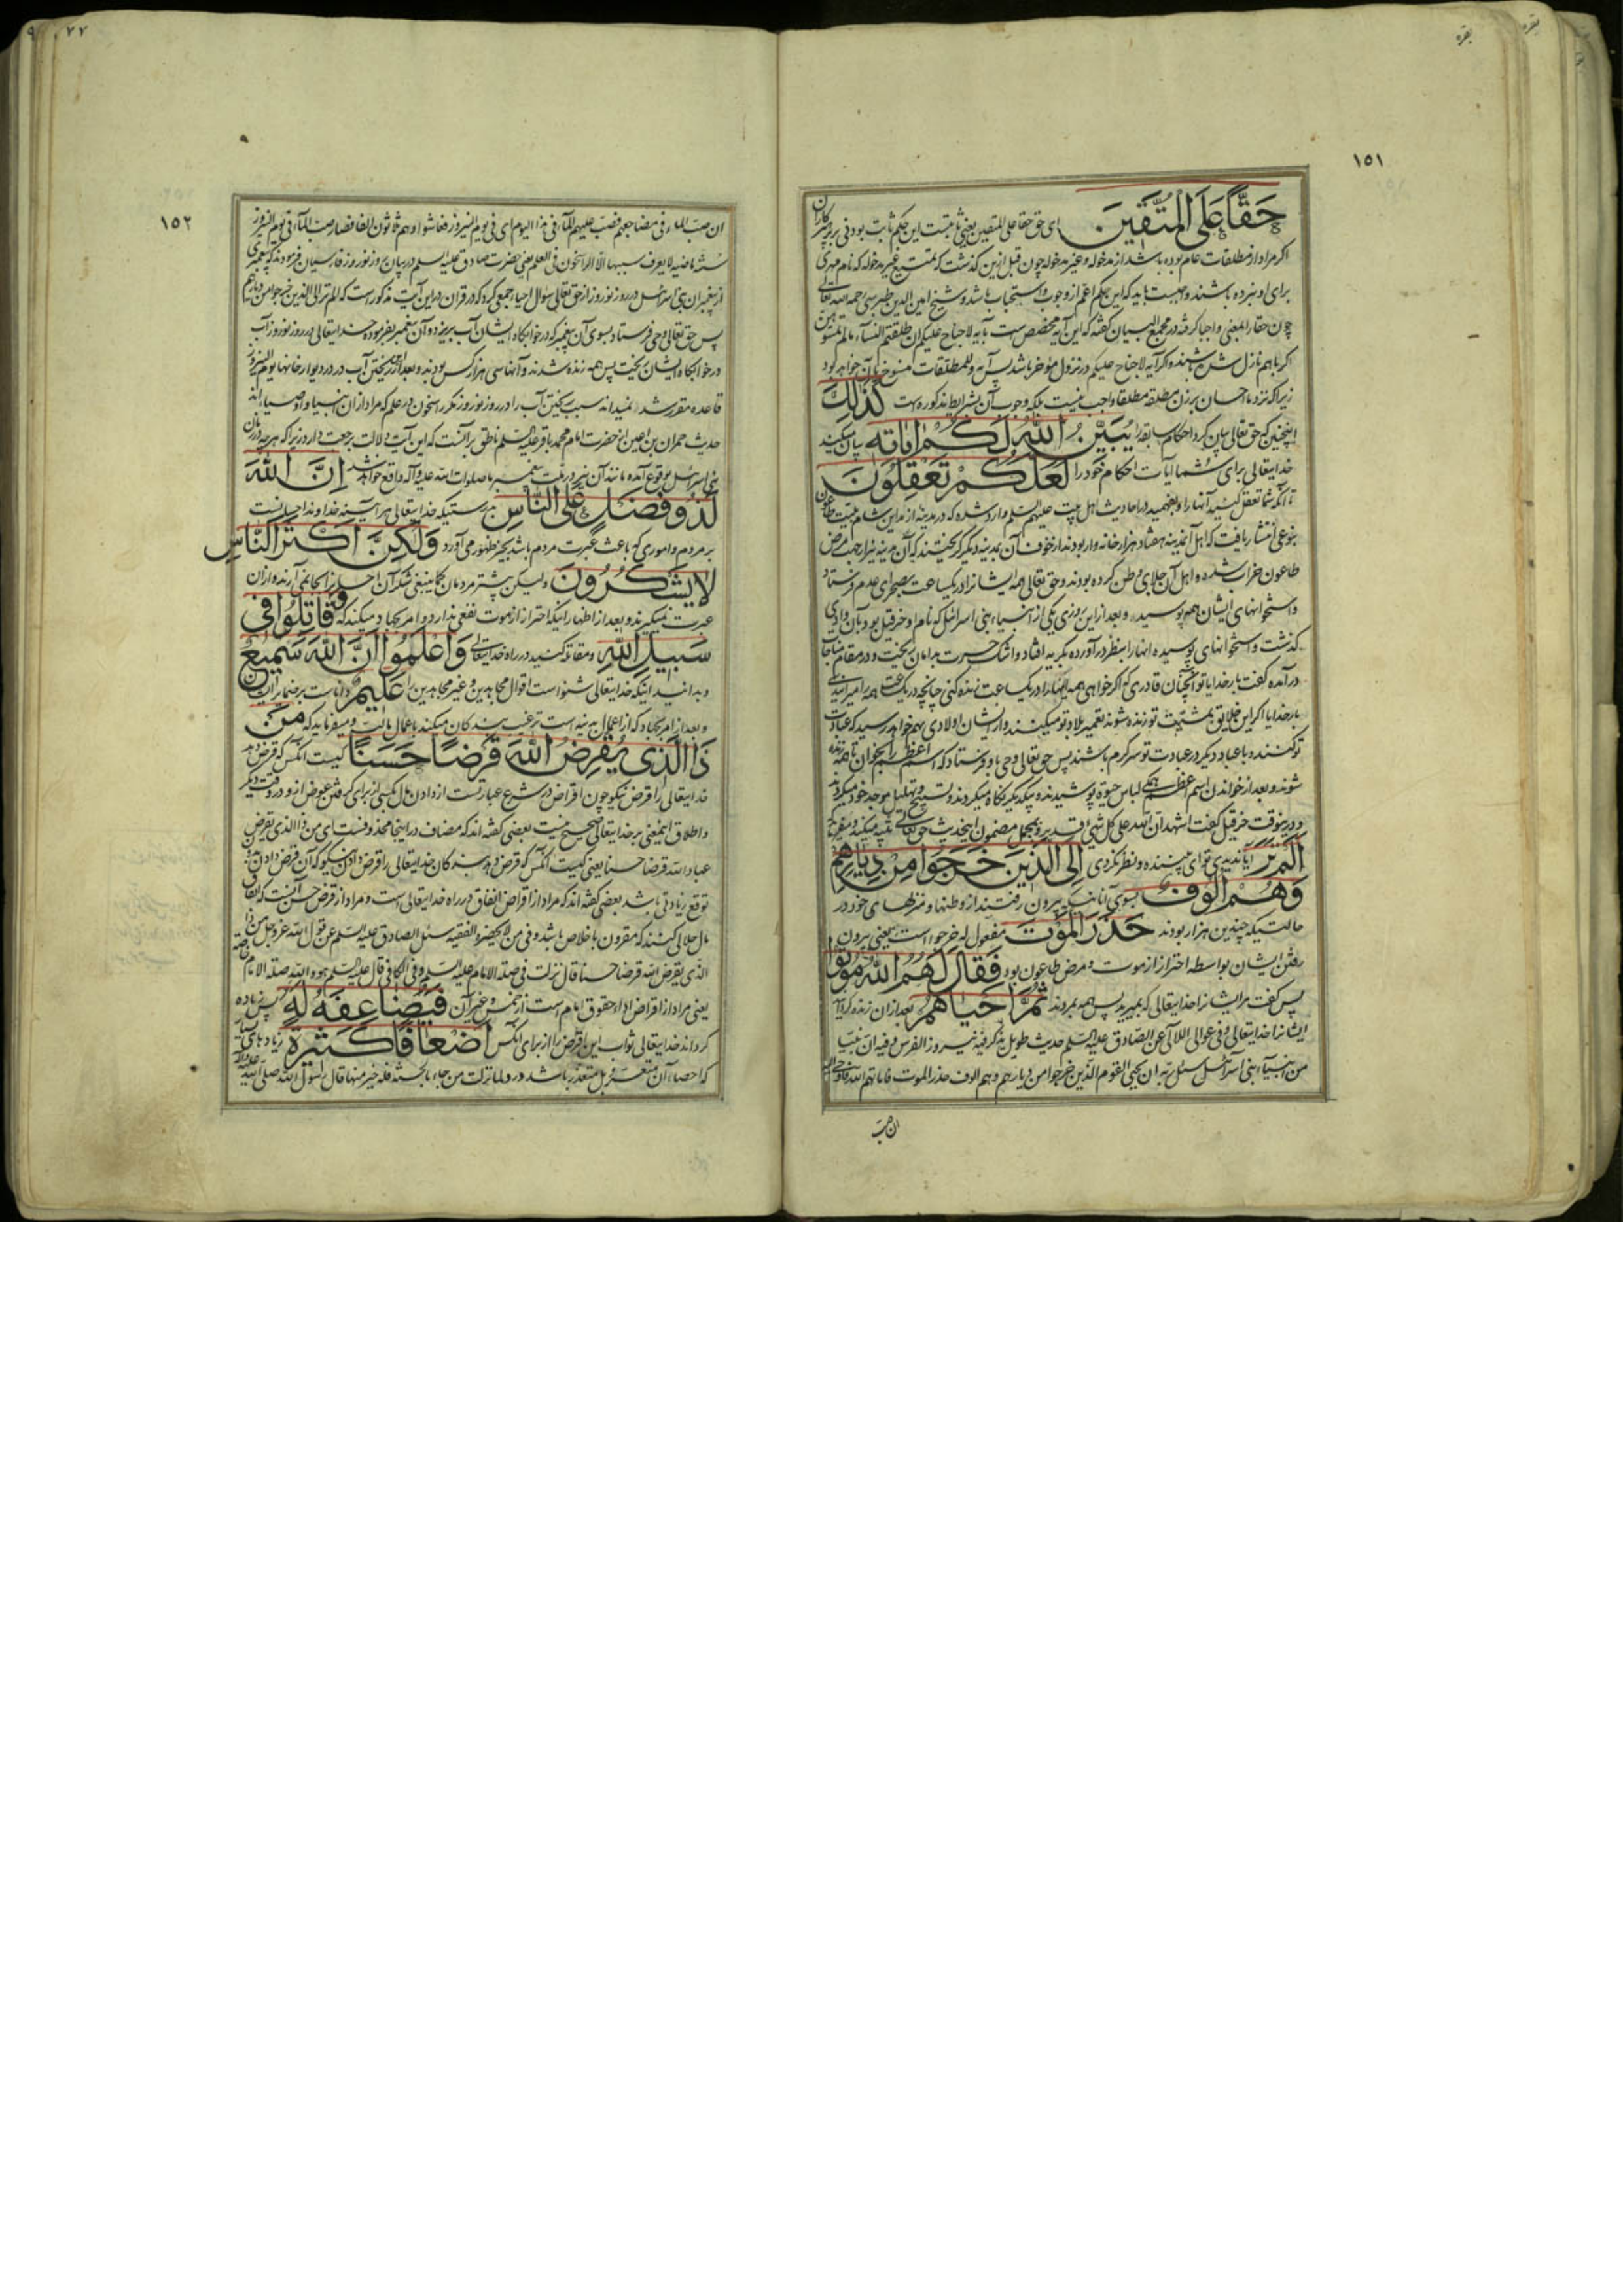 بقره
بقره
۱۵۱
حَقًّا عَلَى الْمُتَّقِينَ ای حق حقا علی المتقین یعنی ثابتست این حکم ثابت بودنی بر پرهیزکاران
اگر مراد از مطلقات عام بوده باشد از مدخوله و غیر مدخوله چون قبل ازین گذشت که تمتیع غیر مدخوله که نام مهری
برای او نبرده باشند واجبست باید که این حکم اعم از وجوب و استحباب باشد و شیخ امین الدین طبرسی رحمه الله تعالی
چون حقا را بمعنی واجبا گرفته در مجمع البیان گفته که این آیه مخصص است بآیه لا جناح علیکم ان طلقتم النسآء ما لم تمسوهن
اگر باهم نازل شده باشند و اگر آیه لا جناح علیکم در نزول مؤخر باشد پس آیه وللمطلقات منسوخ بآن خواهد بود
زیرا که نزد ما احسان بر زن مطلقه مطلقا واجب نیست بلکه وجوب آن بشرایط مذکوره است كَذَلِكَ
اینچنین که حق تعالی بیان کرد احکام سابقه را يُبَيِّنُ اللَّهُ لَكُمْ ايَاتِهِ بیان میکند
خدایتعالی برای شما آیات احکام خود را لَعَلَّكُمْ تَعْقِلُونَ
تا آنکه شما تعقل کنید آنها را و بفهمید در احادیث اهل بیت علیهم السلم وارد شده که در مدینه از مداین شام طاعون
بنوعی انتشار یافت که اهل آن مدینه هفتاد هزار خانه وار بودند از خوف آن بمدینه دیگر گریختند که آن مدینه نیز از جهت مرض
طاعون خراب شده و اهل آن جلای وطن کرده بودند و حق تعالی همه ایشانرا در یکساعت بصحرای عدم فرستاد
و استخوانهای ایشان همه پوسید و بعد از این روزی یکی از انبیاء بنی اسرائل که نام او حزقیل بود بآن وادی
گذشت و استخوانهای پوسیده آنها را بنظر درآورده بگریه افتاد و اشک حسرت بدامان ریخت و در مقام مناجات
درآمده گفت بارخدایا تو آنچنان قادری که اگر خواهی همه اینها را در یکساعت زنده کنی چنانچه در یکساعت همه را میرانیدی
بارخدایا اگر این خلایق بمشیت تو زنده شوند تعمیر بلاد تو میکنند و از ایشان اولادی بهم خواهد رسید که عبادت
تو کنند و با عباد دیگر در عبادت تو سرگرم باشند پس حق تعالی وحی باو فرستاد که اسم اعظم را بخوان تا همه زنده
شوند و بعد از خواندن اسم اعظم همگی لباس حیوة پوشیدند و بیکدیگر نگاه میکردند و تسبیح و تهلیل موجد خود میکردند
و درینوقت حزقیل گفت اشهد ان الله علی کل شیء قدیر و بمجمل مضمون اینحدیث حق تعالی تنبیه میکند و میفرماید
اَلَمْ تَرَ آیا ندیدی تو ای بیننده و نظر نکردی اِلَى الَّذِينَ خَرَجُوا مِنْ دِيَارِهِمْ
وَهُمْ اُلُوفٌ بسوی آنانیکه بیرون رفتند از وطنها و منزلهای خود در
حالتیکه چندین هزار بودند حَذَرَ الْمَوْتِ مفعول له خرجوا است یعنی بیرون
رفتن ایشان بواسطه احتراز از موت و مرض طاعون بود فَقَالَ لَهُمُ اللَّهُ مُوتُوا
پس گفت مر ایشانرا خدایتعالی که بمیرید پس همه بمردند ثُمَّ اَحْيَاهُمْ بعد از آن زنده گردانید
ایشانرا خدایتعالی و فی عوالی اللآلی عن الصادق علیه السلم حدیث طویل یذکر فیه نیروز الفرس و فیه ان نبیا
من انبیآء بنی اسرآئیل سئل ربه ان یحیی القوم الذین خرجوا من دیارهم وهم الوف حذر الموت فاماتهم الله فاوحی الیه
ان صب
۷۷
۱۵۲
ان صب المآء فی مضاجعهم فصب علیهم المآء فی هذا الیوم ای فی یوم النیروز فعاشوا وهم ثلثون الفا فصار صب المآء فی یوم النیروز
سنة ماضیه لا یعرف سببها الا الراسخون فی العلم یعنی حضرت صادق علیه السلم در بیان روز نوروز فارسیان فرمودند که پیغمبری
از پیغمبران بنی اسرائیل در روز نوروز از حق تعالی سؤال احیاء جمعی کرد که در قران در این آیت مذکور است که الم تر الی الذین خرجوا من دیارهم
پس حق تعالی وحی فرستاد بسوی آن پیغمبر که در خوابگاه ایشان آب بریز و آن پیغمبر بفرموده خدایتعالی در روز نوروز آب
در خوابگاه ایشان ریخت پس همه زنده شدند و آنها سی هزار کس بودند و بعد از این ریختن آب در در و دیوار خانها یوم النیروز
قاعده مقرر شد و نمیداند سبب ریختن آب را در روز نوروز مگر راسخون در علم که مراد از ان انبیا و اوصیاء اند
حدیث حمران بن اعین از حضرت امام محمد باقر علیه السلم ناطق بر آنست که این آیت دلالت بر رجعت دارد زیرا که هرچه در زمان
بنی اسرائیل بوقوع آمده مانند آن نیز در امت پیغمبر ما صلوات الله علیه و آله واقع خواهد شد اِنَّ اللَّهَ
لَذُو فَضْلٍ عَلَى النَّاسِ بدرستیکه خدایتعالی هر آینه خداوند احسانست
بر مردم و اموری که باعث عبرت مردم باشد بحیز ظهور می‌آورد وَلَكِنَّ اَكْثَرَ النَّاسِ
لَا يَشْكُرُونَ ولیکن بیشتر مردمان کما ینبغی شکر آن احسانرا بجا نمی‌آرند و از آن
عبرت نمیگیرند و بعد از اظهار اینکه احتراز از موت نفعی ندارد و امر بجهاد میکند که وَقَاتِلُوا فِي
سَبِيلِ اللَّهِ و مقاتله کنید در راه خدایتعالی وَاعْلَمُوا اَنَّ اللَّهَ سَمِيعٌ
و بدانید اینکه خدایتعالی شنواست اقوال مجاهدین و غیر مجاهدین را عَلِيمٌ داناست بر ضمایر ایشان
و بعد از امر بجهاد که از اعمال بدنیه است ترغیب بندگان میکند باعمال مالیه و میفرماید که مَنْ
ذَا الَّذِي يُقْرِضُ اللَّهَ قَرْضًا حَسَنًا کیست آنکس که قرض دهد
خدایتعالی را قرض نیکو چون اقراض در شرع عبارتست از دادن مال بکسی از برای گرفتن عوض از او در وقت دیگر
و اطلاق اینمعنی بر خدایتعالی صحیح نیست بعضی گفته‌اند که مضاف در اینجا محذوفست ای من ذا الذی یقرض
عباد الله قرضا حسنا یعنی کیست آنکس که قرض دهد بندگان خدایتعالی را قرض دادن نیکو که آن قرض دادن بدون
توقع زیادتی باشد بعضی گفته‌اند که مراد از اقراض انفاق در راه خدایتعالی است و مراد از قرض حسن آنست که انفاق
مال حلالی کنند که مقرون باخلاص باشد و فی من لا یحضره الفقیه سئل الصادق علیه السلم عن قول الله عز وجل من ذا
الذی یقرض الله قرضا حسنا قال نزلت فی صلة الامام علیه السلم وفی الکافی قال علیه السلم هو والله صلة الامام خاصة
یعنی مراد از اقراض ادای حقوق امام است از خمس و غیر آن فَيُضَاعِفَهُ لَهُ پس زیاده
گرداند خدایتعالی ثواب این اقراض را از برای آنکس اَضْعَافًا كَثِيرَةً زیادهای بسیار
که احصاء آن متعسر بل متعذر باشد در و لما نزلت من جاء بالحسنة فله خیر منها قال رسول الله صلی الله علیه و آله